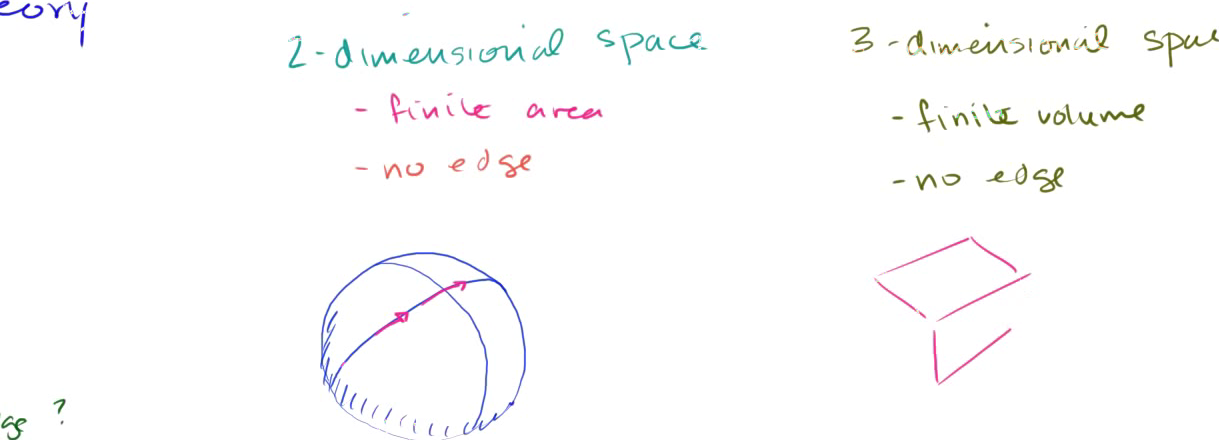 eory
2-dimensional space
- finite area
- no edge
3-dimensional spac
- finite volume
- no edge
ge ?